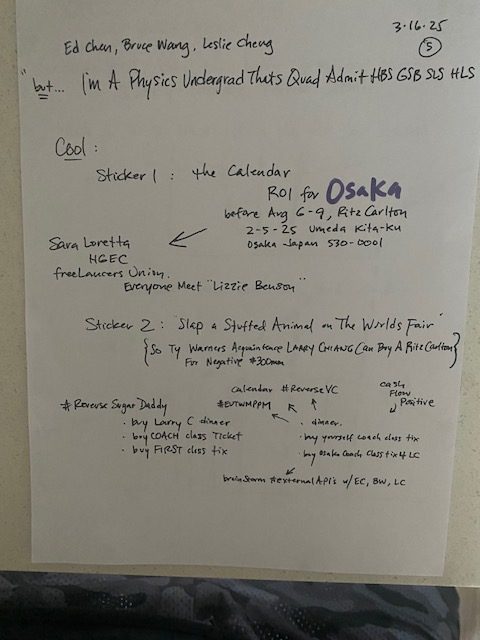 3.16.25
5
Ed Chen, Bruce Wang, Leslie Cheng
"but... I'm A Physics Undergrad Thats Quad Admit HBS GSB SLS HLS
Cool :
Sticker 1 : the Calendar
ROI for Osaka
before Aug 6-9, Ritz Carlton
2-5-25 Umeda Kita-ku
Osaka Japan 530-0001
Sara Loretta
HGEC
freelancers Union.
Everyone Meet "Lizzie Benson"
Sticker 2 : "Slap a Stuffed Animal on The Worlds Fair"
{So Ty Warners Acquaintence LARRY CHIANG Can Buy A Ritz Carlton}
For Negative $300mm
calendar #ReverseVC
cash
Flow
Positive
#EVTWMPPM
#Reverse Sugar Daddy
· buy Larry C dinner
· buy COACH class Ticket
· buy FIRST class tix
· dinner.
· buy yourself coach class tix
· buy Osaka Coach Class tix 4 LC
brainstorm #externalApi's w/ EC, BW, LC